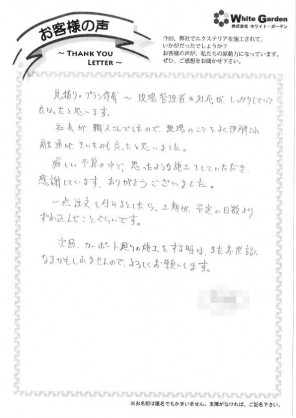 お客様の声
〜 THANK YOU
LETTER 〜
White Garden
株式会社 ホワイト・ガーデン
今回、弊社でエクステリアを施工されて、
いかがだったでしょうか？
お客様の声が、私たちの原動力になっています。
ぜひ、ご感想をお聞かせ下さい。
見積り・プラン作成 〜 現場管理者の対応が しっかりしていて
良かったと思います。
社長が 職人さんでしたので、現場のことをよく説明され
融通が、きいたのも良かったと思いました。
厳しい予算の中で、思ったような施工をしていただき
感謝しています。ありがとうございました。
一点注文を付けるとしたら、工期が、予定の日数より
ずれ込んだことぐらいです。
次回、カーポート周りの施工をする時は、またお世話に
なるかもしれませんので、よろしくお願いします。
※お名前は匿名でもかまいません。支障がなければ、ご記名下さい。